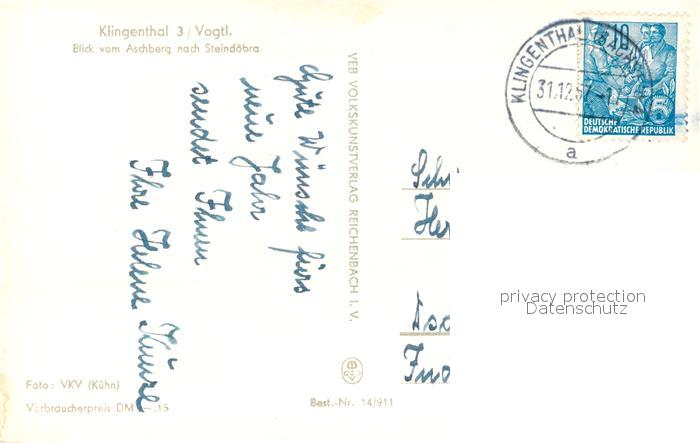 Klingenthal 3 / Vogtl.
Blick vom Aschberg nach Steindöbra
Gute Wünsche fürs
neue Jahr
sendet Ihnen
Ihre Helene
VEB VOLKSKUNSTVERLAG REICHENBACH I. V.
KLINGENTHAL
31.12.57
a
10
5
DEUTSCHE
DEMOKRATISCHE REPUBLIK
privacy protection
Datenschutz
Foto: VKV (Kühn)
Verbraucherpreis DM —,15
Best.-Nr. 14/911